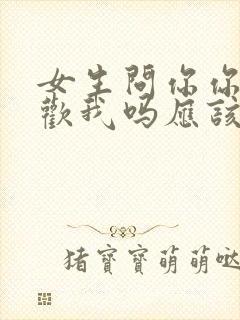 女生問你你
歡我嗎應該
猪寶寶萌萌哒